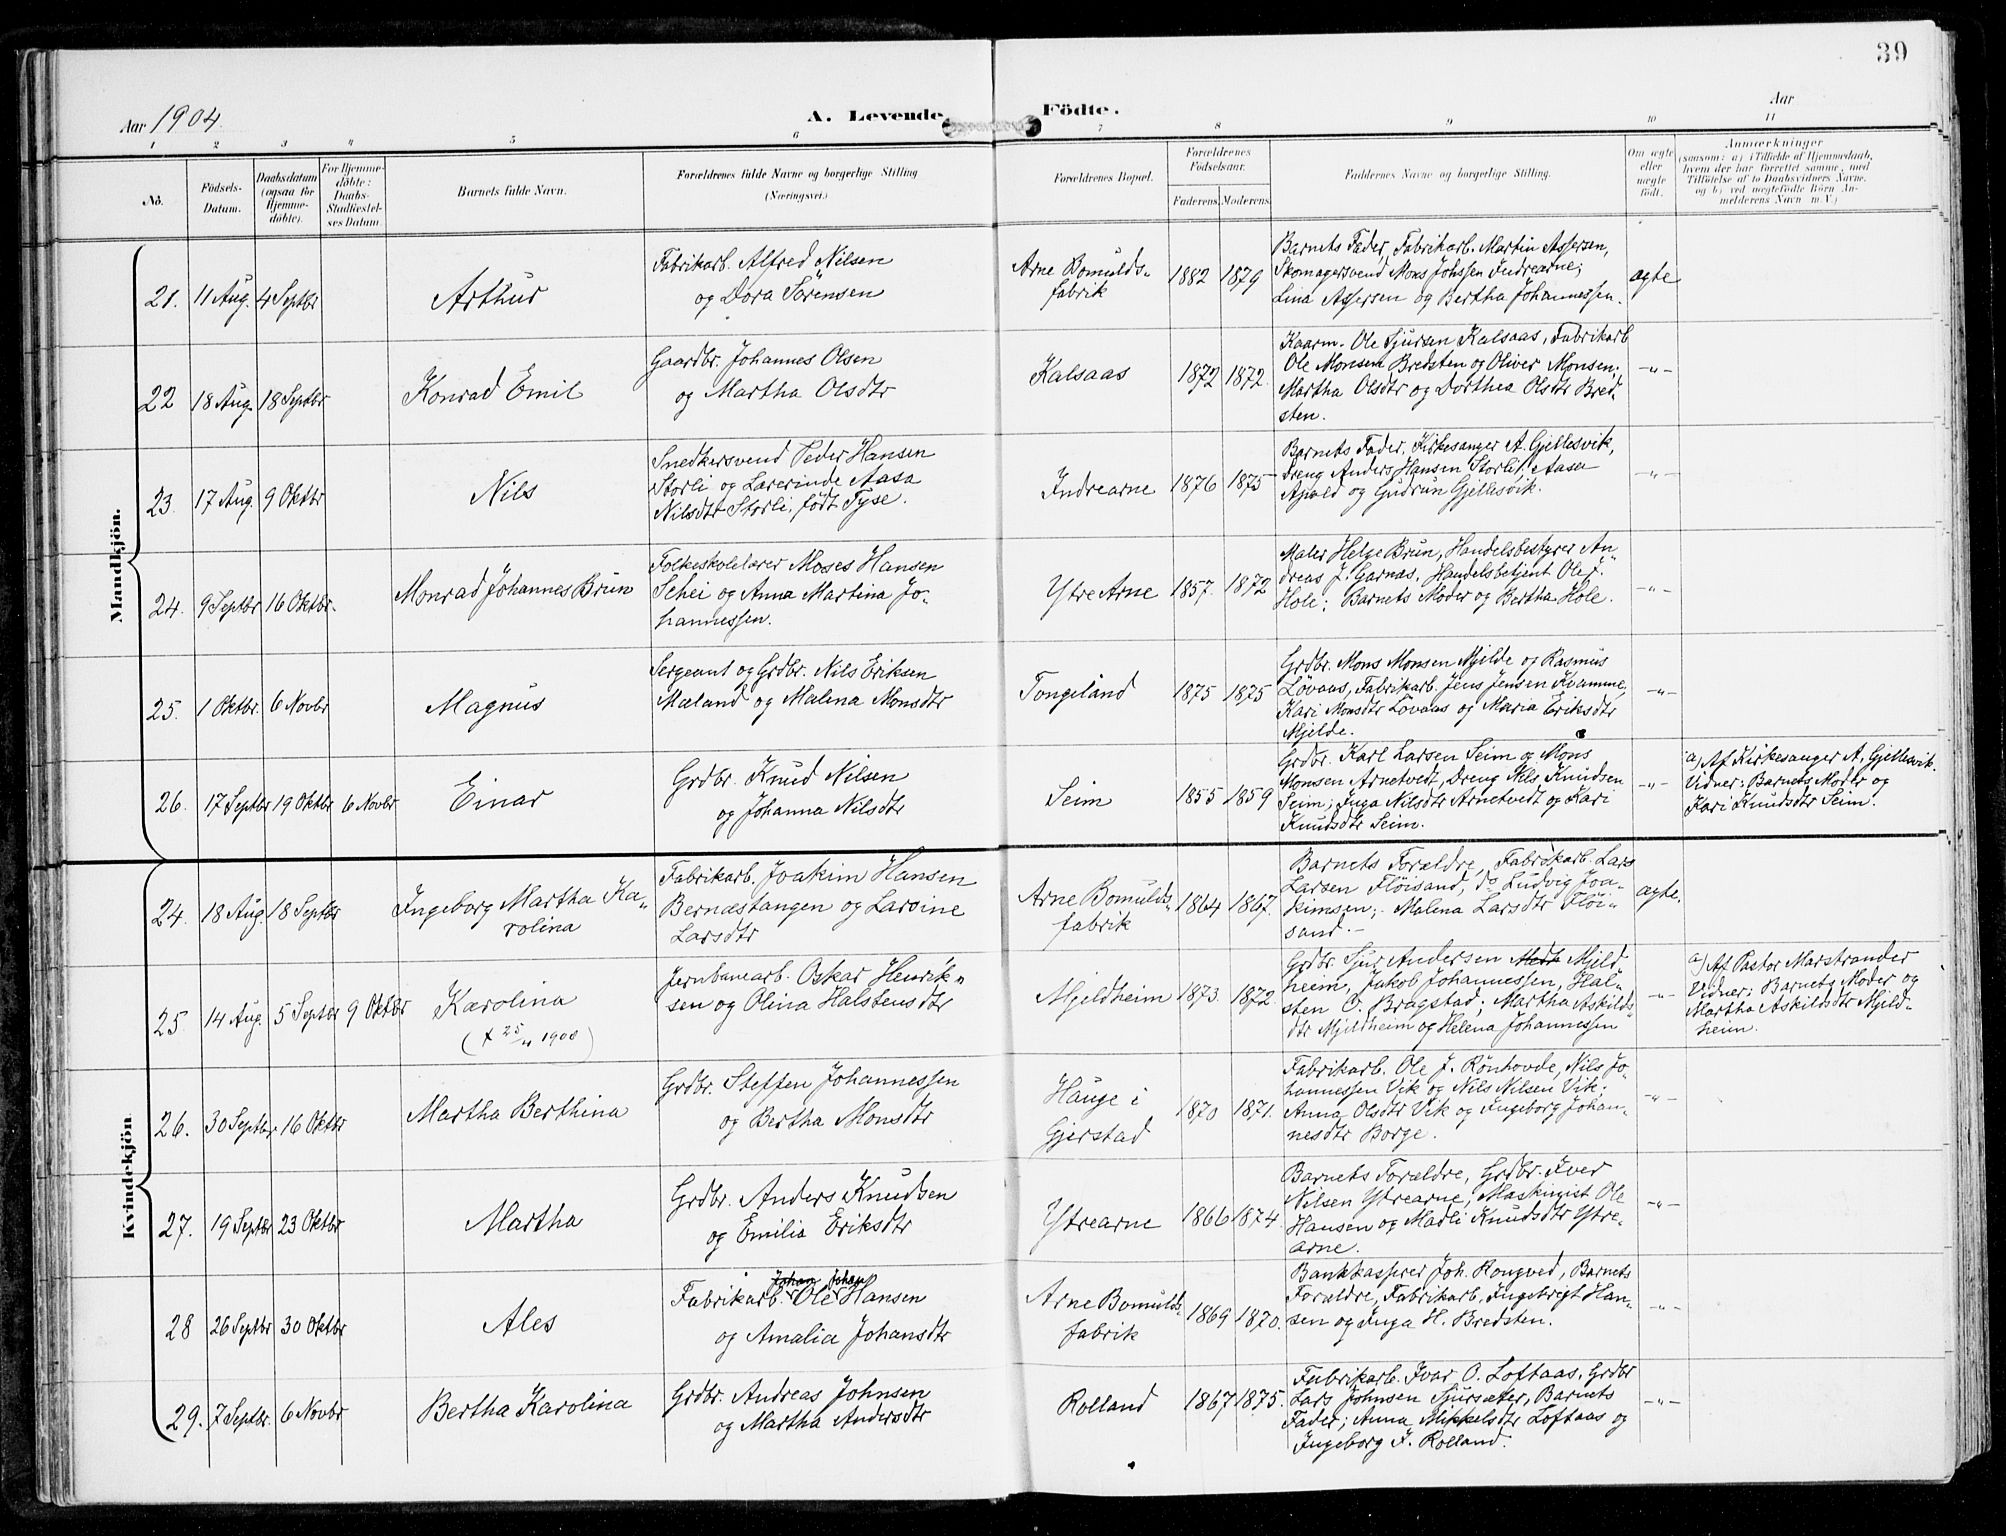 39
Aar 1904
A. Levende Födte.
Aar
1 2 3 4 5 6 7 8 9 10 11
No.
Födsels-
Datum.
Daabsdatum
(ogsaa for
Hjemme-
döbte).
For Hjemme-
döbte:
Daabs-
Stadfæstel-
ses Datum.
Barnets fulde Navn.
Forældrenes fulde Navne og borgerlige Stilling
(Næringsvei.)
Forældrenes Bopæl.
Forældrenes
Födselsaar.
Faderens. Moderens.
Faddernes Navne og borgerlige Stilling.
Om ægte
eller
uægte
födt.
Anmærkninger
(saasom: a) i Tilfælde af Hjemmedaab,
hvem der har forrettet samme, med
Tilföielse af to Daabsvidners Navne.
og b) ved uegtefödte Börn An-
melderens Navn m. V.)
Mandkjön.
21. 11 Aug. 4 Septbr
Arthur
Fabrikarb. Alfred Nilsen
og Dora Sörensen
Arne Bomulds-
fabrik
1882 1879
Barnets Fader, Fabrikarb. Martin Assersen,
Skomagersvend Mons Johssen Indrearne;
Lina Assersen og Bertha Johannessen.
ægte
22 18 Aug. 18 Septbr
Konrad Emil
Gaardbr. Johannes Olsen
og Martha Olsdtr
Kalsaas
1872 1872.
Kaarm. Ole Sjursen Kalsaas, Fabrikarb
Ole Monsen Bredsten og Oliver Monsen;
Martha Olsdtr og Dorthea Olsdtr Bred-
sten.
-"-
23. 17 Aug. 9 Oktbr
Nils
Snedkersvend Peder Hansen
Storli og Lærerinde Aasa
Nilsdtr Storli, födt Tyse.
Indrearne
1876 1875
Barnets Fader, Kirkesanger A. Gjellesvik,
Dreng Anders Hansen Storli; Aasa
Apold og Gudrun Gjellesvik.
-"-
24. 9 Septbr 16 Oktbr.
Monrad Johannes Brun
Folkeskolelærer Moses Hansen
Schei og Anna Martina Jo-
hannessen.
Ytre Arne
1857. 1872
Maler Helge Brun, Handelsbestyrer An-
dreas J. Garnæs, Handelsbetjent Ole J.
Hole; Barnets Moder og Bertha Hole.
-"-
25. 1 Oktbr. 6 Novbr
Magnus
Sergeant og Grdbr. Nils Eriksen
Mæland og Malena Monsdtr
Tongeland
1875 1875
Grdbr. Mons Monsen Mjelde og Rasmus
Lövaas, Fabrikarb. Jens Jensen Kvamme,
Kari Monsdtr Lövaas og Maria Eriksdtr
Mjelde.
-"-
26. 17 Septbr 19 Oktbr 6 Novbr
Einar
Grdbr. Knud Nilsen
og Johanna Nilsdtr
Seim
1855 1859
Grdbr. Karl Larsen Seim og Mons
Monsen Arnetvedt, Dreng Nils Knudsen
Seim; Inga Nilsdtr Arnetvedt og Kari
Knudsdtr Seim.
-"-
a) Af Kirkesanger A. Gjellesvik.
Vidner: Barnets Moder og
Kari Knudsdtr Seim.
Kvindekjön
24. 18 Aug. 18 Septbr
Ingeborg Martha Ka-
rolina
Fabrikarb. Joakim Hansen
Bernæstangen og Larsine
Larsdtr
Arne Bomulds-
fabrik
1864 1867.
Barnets Forældre, Fabrikarb. Lars
Larsen Flöisand, do Ludvig Joa-
kimsen; Malena Larsdtr Flöi-
sand.
ægte.
25. 14 Aug. 5 Septbr 9 Oktbr
Karolina
(† 25/11 1908)
Jernbanearb. Oskar Henrik-
sen og Olina Halstensdtr
Mjeldheim
1873. 1872.
Grdbr. Sjur Andersen Mjeld
heim, Jakob Johannessen, Hal-
sten O. Bragstad; Martha Askilds-
dtr Mjeldheim og Helena Johannessen
-"-
a) Af Pastor Marstrander
Vidner: Barnets Moder og
Martha Askildsdtr Mjeld-
heim.
26. 30 Septbr 16 Oktbr
Martha Berthina
Grdbr. Steffen Johannessen
og Bertha Monsdtr
Hauge i
Gjerstad
1870 1871.
Fabrikarb. Ole J. Rönhovde, Nils Jo-
hannessen Vik og Nils Nilsen Vik;
Anna Olsdtr Vik og Ingeborg Johan-
nesdtr Borge.
-"-
27. 19 Septbr 23 Oktbr
Martha
Grdbr. Anders Knudsen
og Emilia Eriksdtr
Ytrearne
1866 1874.
Barnets Forældre, Grdbr. Iver
Nilsen Ytrearne, Maskinist Ole
Hansen og Madli Knudsdtr Ytre-
arne.
-"-
28 26 Septbr 30 Oktbr
Ales
Johan Johan
Fabrikarb. Ole Hansen
og Amalia Johansdtr
Arne Bomulds-
fabrik
1869 1870.
Bankkasserer Joh. Rongved, Barnets
Forældre, Fabrikarb. Ingebrigt Han-
sen og Inga H. Bredsten.
-"-
29. 7 Septbr. 6 Novbr
Bertha Karolina
Grdbr. Andreas Johnsen
og Martha Andersdtr
Rolland
1867 1875.
Fabrikarb. Ivar O. Loftaas, Grdbr
Lars Johnsen Sjursæter, Barnets
Fader; Anna Mikkelsdtr Loftaas og
Ingeborg J. Rolland.
-"-